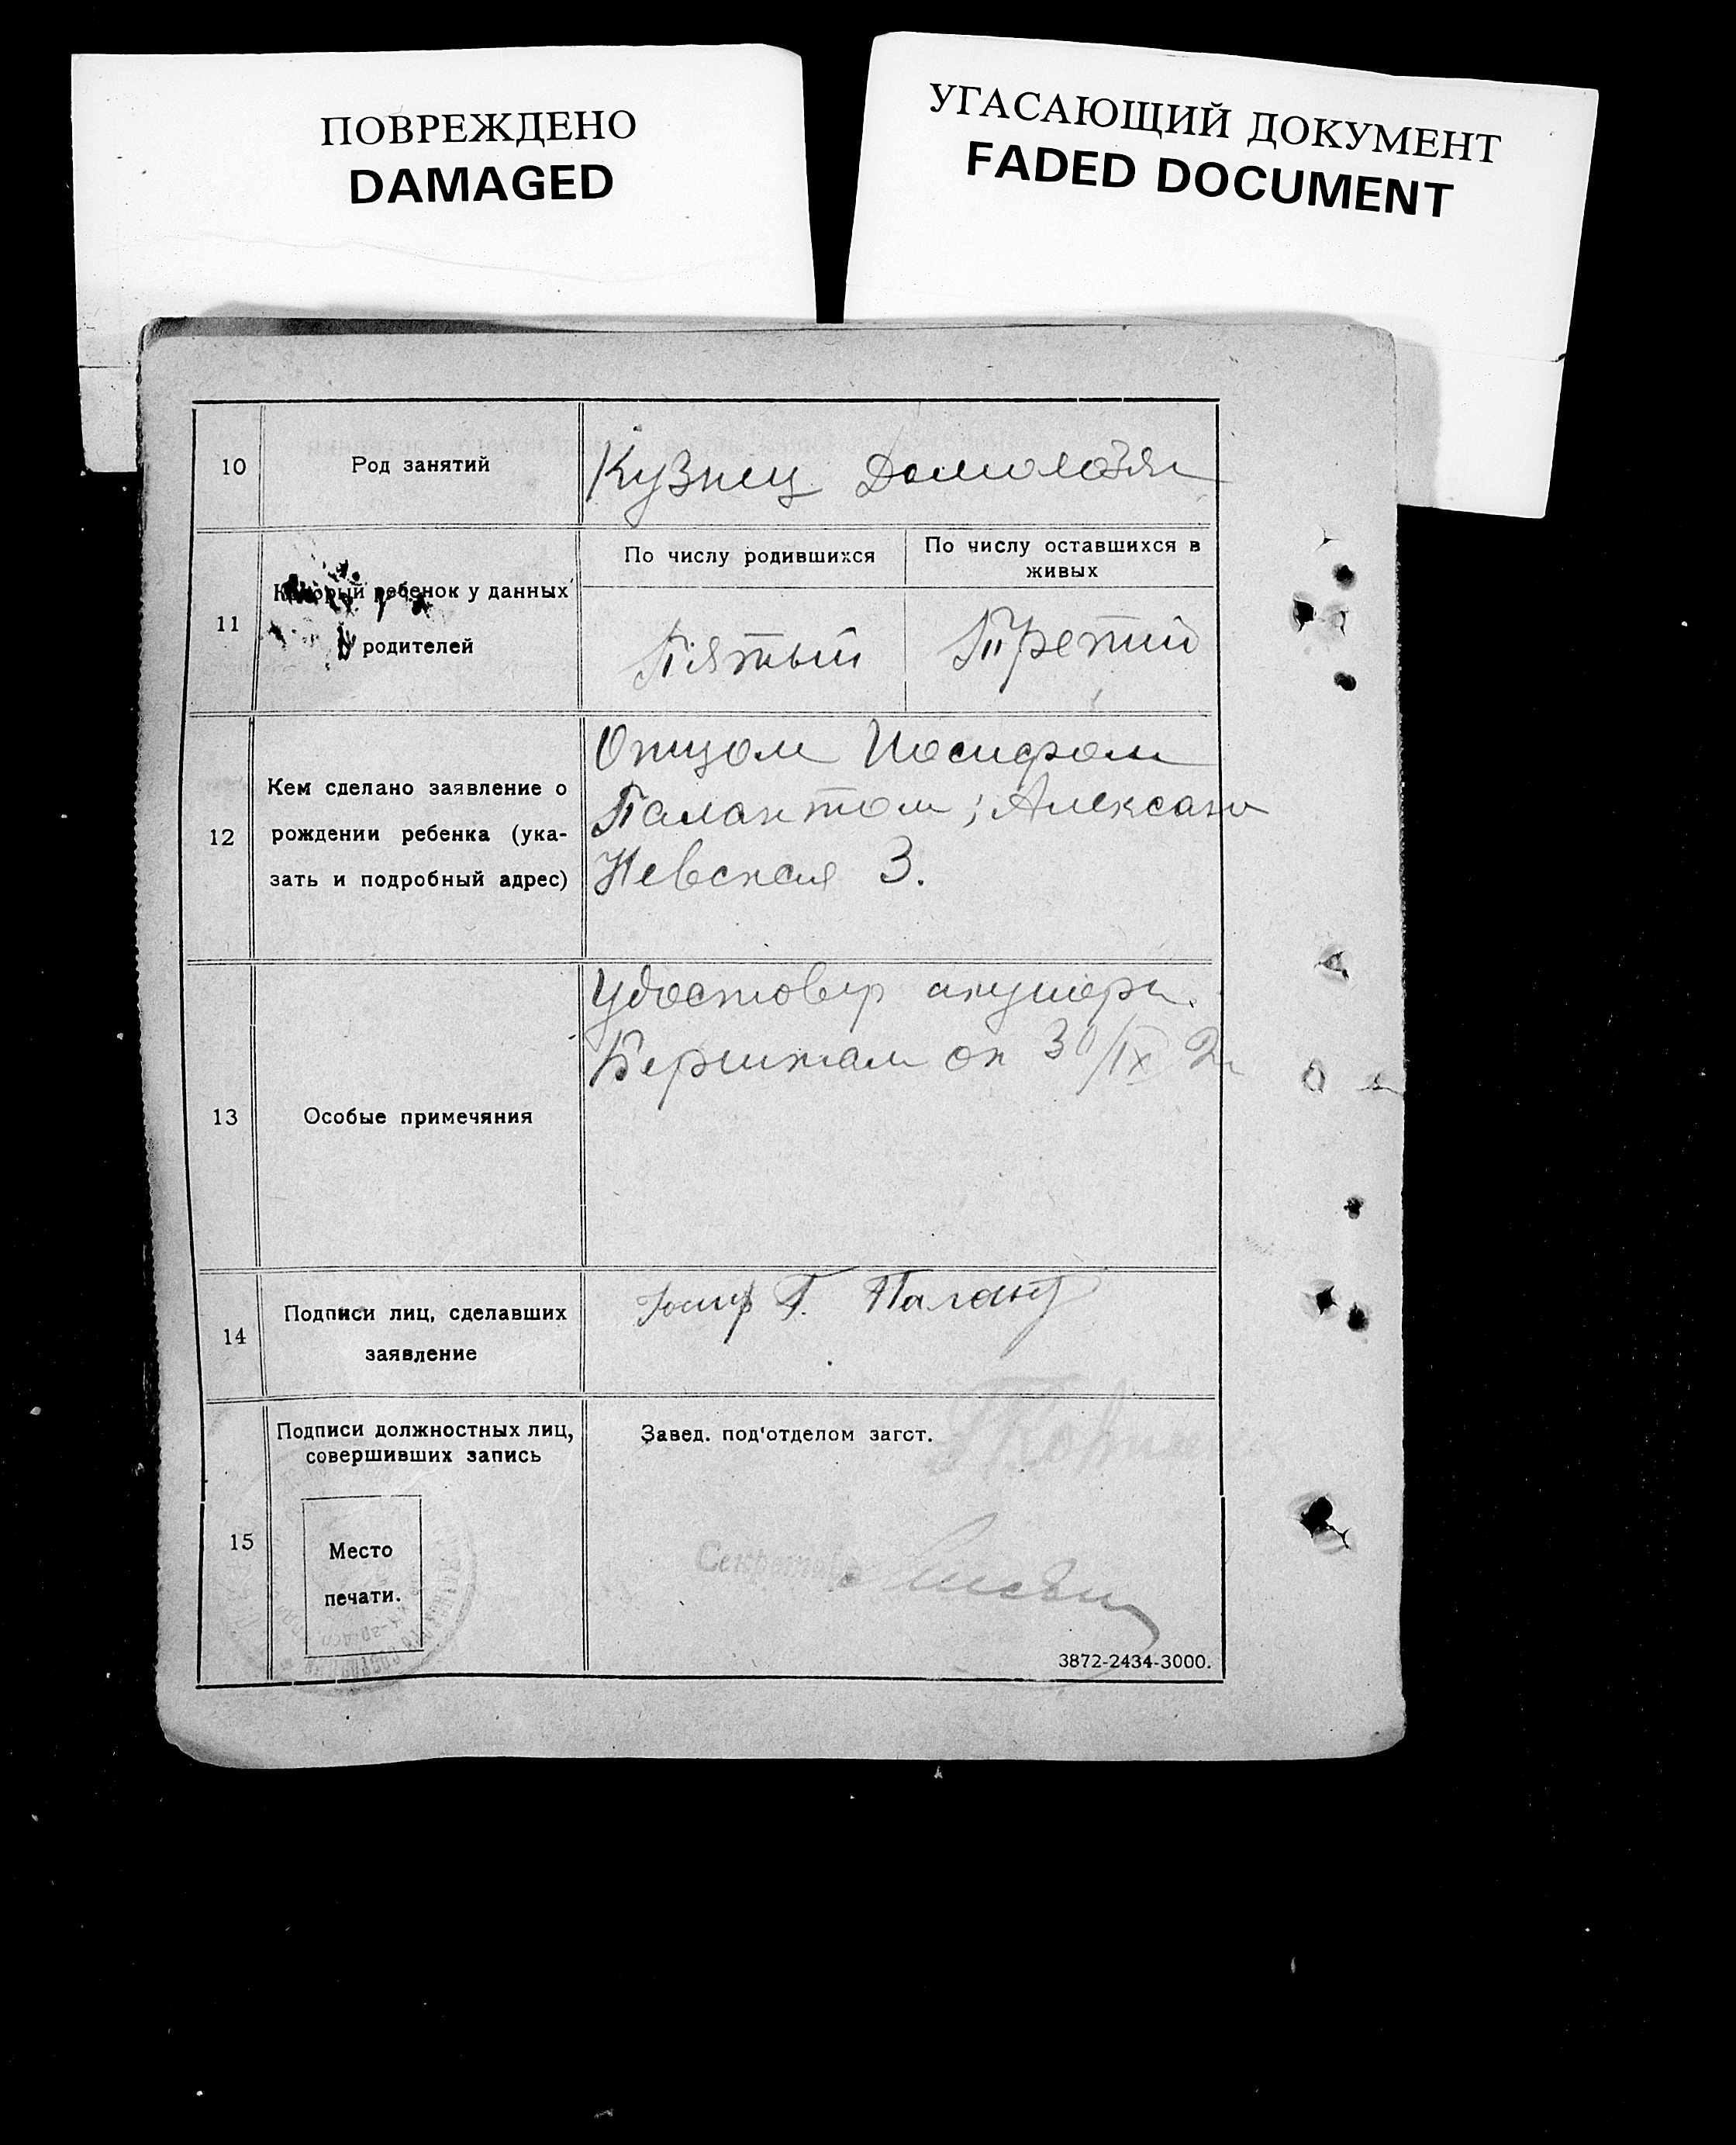 ПОВРЕЖДЕНО
DAMAGED
УГАСАЮЩИЙ ДОКУМЕНТ
FADED DOCUMENT
10 Род занятий Кузнец Домохозяй
11 Который ребенок у данных родителей
По числу родившихся
По числу оставшихся в живых
Пятый Третий
12 Кем сделано заявление о
рождении ребенка (ука-
зать и подробный адрес)
Отцом Иосифом
Палантом; Александ
Невская 3.
13 Особые примечяния
Удостовер акушерк.
от 30/IX 2
14 Подписи лиц, сделавших
заявление
Иосиф Г. Палант
15 Подписи должностных лиц,
совершивших запись
Место
печати.
Завед. под'отделом загст.
Секретарь
3872-2434-3000.